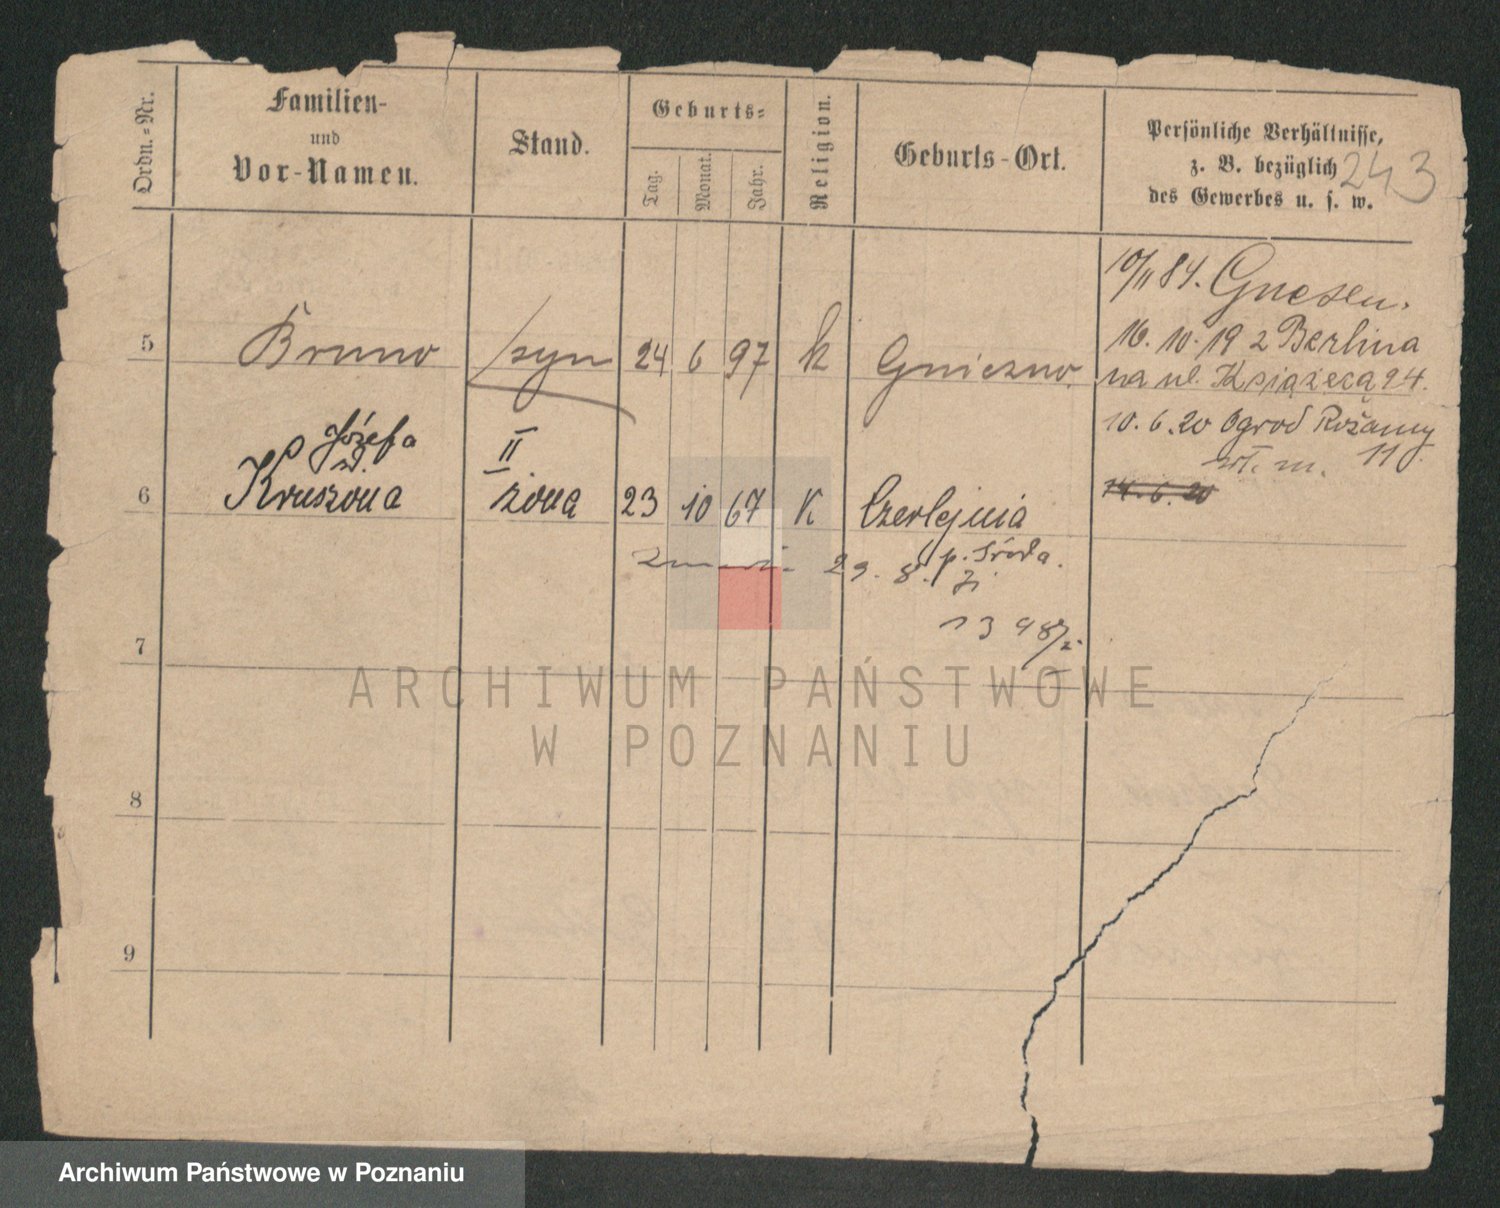 Ordn.-Nr.
Familien-
und
Vor-Namen.
Stand.
Geburts-
Tag.
Monat.
Jahr.
Religion.
Geburts-Ort.
Persönliche Verhältnisse,
z. B. bezüglich
des Gewerbes u. s. w.
243
10/11 84. Gnesen.
16. 10. 19 z Berlina
na ul. Książęcą 24.
5 Bruno syn 24 6 97 k Gniezno.
10. 6. 20 Ogrod Różanny
11.
Józefa II
6 Kruszona żona 23 10 67 K Czerlejnia
14. 6. 20
p. Środa.
29. 8.
7
8
9
ARCHIWUM PAŃSTWOWE
W POZNANIU
Archiwum Państwowe w Poznaniu